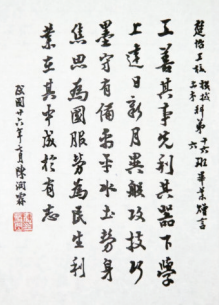 楚怡工校 機械科第十六班畢業贈言
土木科 六
工善其事先利其器下學
上達日新月異般攻技巧
墨守有備禹平水土勞身
焦思為國服勞為民生利
業在其 成於有志
民國 十六年七月陳潤霖